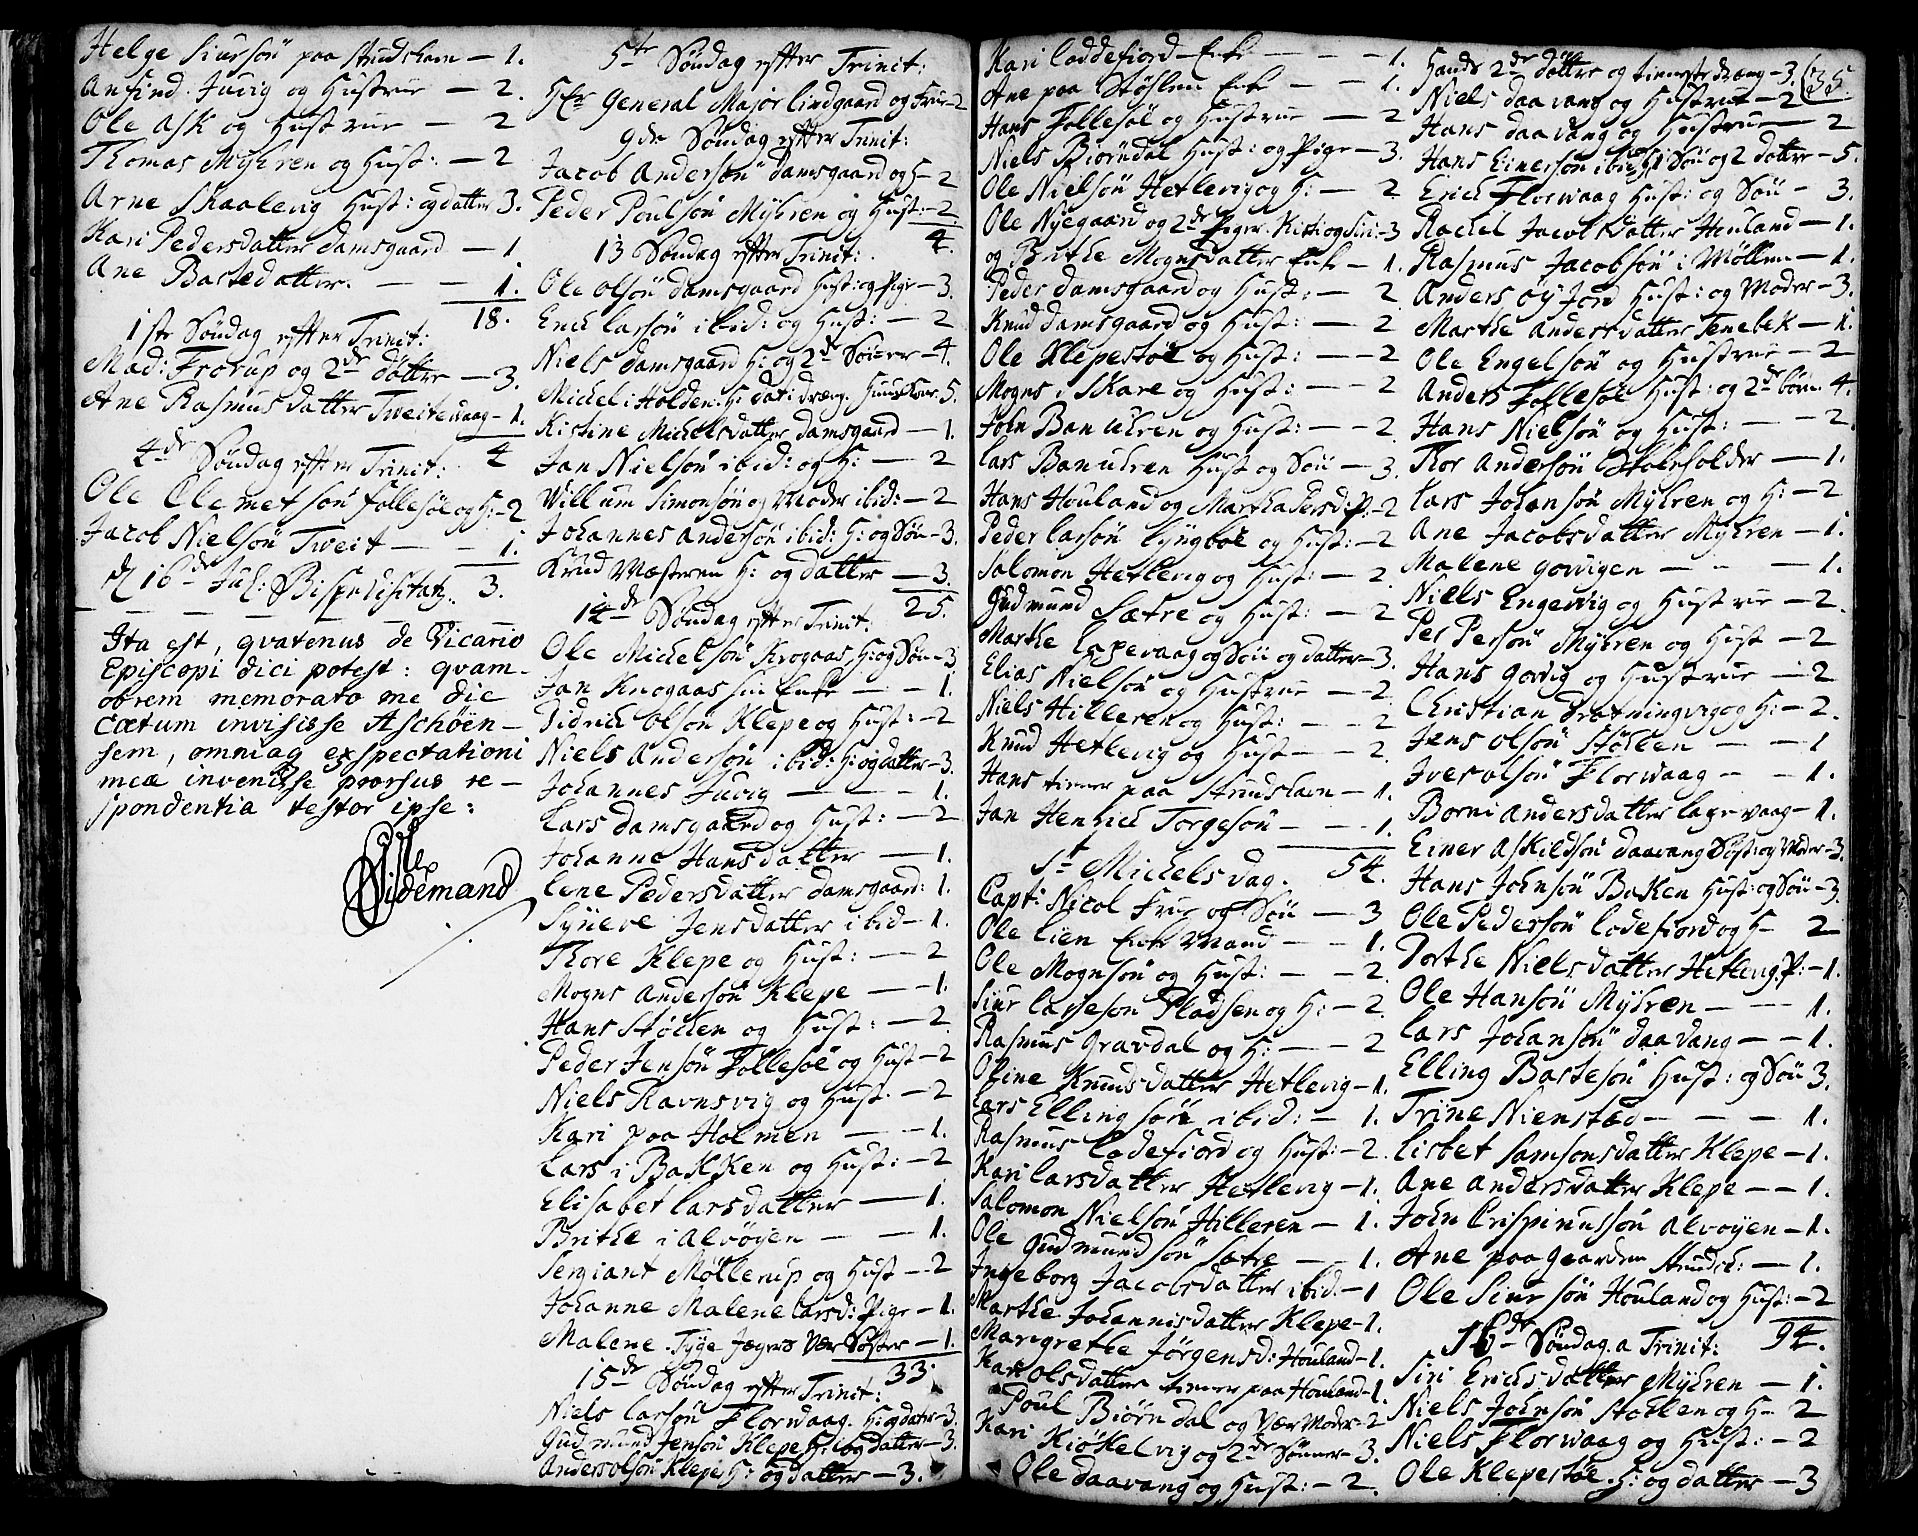 Helge Siursøn paa Strudshavn — 1.
Anfind Juvig og Hustrue — 2.
Ole Ask og Hustrue — 2
Thomas Myhren og Hust: — 2
Arne Skaalevig Hust: og datter 3.
Kari Pedersdatter Damsgaard — 1.
Ane Bartedatter. — — 1.
18.
1ste Søndag efter Trinit:
Mad: Frorup og 2de døttre — 3.
Ane Rasmusdatter Tweitevaag — 1.
4
4de Søndag efter Trinit:
Ole Clemetsøn Follesøe og H: — 2
Jacob Nielsøn Tweit — — 1.
3.
d 16de Jul: Bispevisitatz.
Ita est, qvatenus de Vicario
Episcopi dici potest: qvam-
obrem memorato me die
cætum invisisse Aschøen-
sem, omniaq exspectationi
meæ invenisse prorsus re-
spondentia testor ipse:
Tidemand
5te Søndag efter Trinit:
Hr General Major Lindgaard og Frue 2
9de Søndag efter Trinit:
Jacob Andersøn Damsgaard og H — 2
Peder Poulsøn Myhren og Hust: — 2
4.
13 Søndag efter Trinit:
Ole Olsøn Damsgaard Hust: og Pige — 3.
Erich Larsøn ibid: og Hust: — 2
Niels Damsgaard H: og 2de Sønner — 4.
Michel i Holden: H: dat: dreng. Huuskone. 5.
Kistine Michelsdatter Damsgaard — 1.
Jan Nielsøn ibid: og H: — 2
Willum Simonsøn og Moder ibid: — 2
Johannes Andersøn ibid: H: og Søn — 3.
Knud Mæsteren H: og datter — 3.
25.
14de Søndag efter Trinit:
Ole Michelsøn Krogaas H: og Søn — 3
Jan Knogaas sin Enke — — 1.
Didrich Olsøn Klepe og Hust: — 2
Niels Andersøn ibid: H: og datter — 3.
Johannes Juvig — — 1.
Lars Damsgaard og Hust: — 2
Johanne Hansdatter — 1.
Lene Pedersdatter Damsgaard: 1.
Syneve Jensdatter ibid — 1.
Thore Klepe og Hust: — 2
Mogns Andersøn Klepe — 1.
Hans Støchen og Hust: — 2.
Peder Jensøn Follesøe og Hust — 2
Niels Ravnsvig og Hust. — 2
Kari paa Holmen — — 1.
Lars i Bakken og Hust: — 2
Elisabet Larsdatter — 1.
Brithe i Alvøyen — — 1.
Sergiant Møllerup og Hust — 2
Johanne Malene Larsd: Pige — 1.
Malene. Tyge Jægers Vær Søster — 1.
33.
15de Søndag efter Trinit:
Niels Larsøn Florwaag. H: og dater — 3.
Gudmund Jensøn Klepe H: og datter — 3.
Anders Olsøn Klepe H: og datter — 3.
Kari Loddefiord Enke — — 1.
Ane paa Støhlen Enke — — 1.
Hans Follesøe og Hustrue — 2
Niels Biørndal Hust: og Pige — 3.
Ole Nielsøn Hetlevig og H: — 2
Ole Nyegaard og 2de Piger. Kisti og Siri — 3
og Brithe Mognsdatter Enke — 1.
Peder Damsgaard og Hust: — 2
Knud Damsgaard og Hust: — 2
Ole Klepestøe og Hust: — 2
Mogns i Skare og Hust: — 2
John Banuhren og Hust: — 2.
Lars Banuhren Hust og Søn — 3.
Hans Houland og Martha Persd: P: — 2
Peder Larsøn Lyngboe og Hust: — 2
Salomon Hetlevig og Hust: — 2
Gudmund Sætre og Hust: — 2
Marthe Lopevaag og Søn og datter — 3.
Elias Nielsøn og Hustrue — 2
Niels Hilleren og Hust: — 2
Knud Hetlevig og Hust — 2.
Hans tiener paa Strudshavn — 1.
Jan Henrich Torgesøn — — 1.
54.
St Michels dag.
Capt: Nicol Frue og Søn — 3
Ole Lien Enke Mand — — 1.
Ole Mognsøn og Hust: — 2.
Siur Lasseson Pladsen og H: — 2.
Rasmus Gravdal og H: — 2
Oline Knudsdatter Hetlevig — 1.
Lars Ellingsøn ibid: — 1.
Rasmus Lodefiord og Hust: — 2.
Kari Larsdatter Hetlevig — 1.
Salomon Nielsøn Hilleren — 1.
Ole Gudmundsøn Sætre — 1.
Ingeborg Jacobsdatter ibid. — 1
Marthe Johannisdatter Klepe — 1.
Margrethe Jørgensd: Houland — 1.
Kari Olsdatter tiener paa Houland — 1.
Poul Biørndal og Vær Moder — 2
Kari Kiøkelvig og 2de Sønner — 3.
Ole Daavang og Hust: — 2.
Hands 2de døttre og tieneste dræng — 3.
(35.
Niels Daavang og Hustrue — 2
Hans Daavang og Hustrue — 2
Hans Einersøn ibid: H: Søn og 2 datter — 5.
Erich Florwaag Hust: og Søn — 3.
Rachel Jacobsdatter Houland — 1.
Rasmus Jacobsøn i Møllen — 1.
Anders Øyjord Hust: og Moder — 3.
Marthe Andersdatter Tenebek — 1.
Ole Engelsøn og Hustrue — 2
Anders Follesøe Hust: og 2de børn. 4.
Hans Nielsøn og Hust: — 2.
Thor Andersøn Stokholder — 1.
Lars Johansøn Myhren og H: — 2
Ane Jacobsdatter Myhren — 1.
Malene Gorvigen — — 1.
Niels Engevig og Hustrue — 2.
Per Persøn Myhren og Hust — 2
Hans Gorvig og Hustrue — 2
Christian Drotningvig og H: — 2.
Jens Olsøn Støhlen — — 1
Iver Olsøn Florwaag — — 1.
Borni Andersdatter Lagevaag — 1.
Einer Askildsøn Daavang Søst: og Moder — 3.
Hans Johnsøn Bakken Hust: og Søn — 3.
Ole Pedersøn Lodefiord og H — 2
Dorthe Nielsdatter Hetlevig P: — 1.
Ole Hansøn Myhren — — 1.
Lars Johansøn Daavang — — 1.
Elling Bartesøn Hust: og Søn 3.
Trine Nienstæd — — 1.
Lisbet Samsonsdatter Klepe — 1.
Ane Andersdatter Klepe — — 1.
John Crispinussøn Alvøyen — 1.
Ane paa Gaarden Strudsh: — 1.
Ole Siursøn Houland og Hust: — 2
94.
16de Søndag a Trinit:
Siri Erichsdatter Myhren — 1.
Niels Johnsøn Støhlen og H — 2
Niels Florwaag og Hust: — 2
Ole Klepestøe. H: og datter — 3